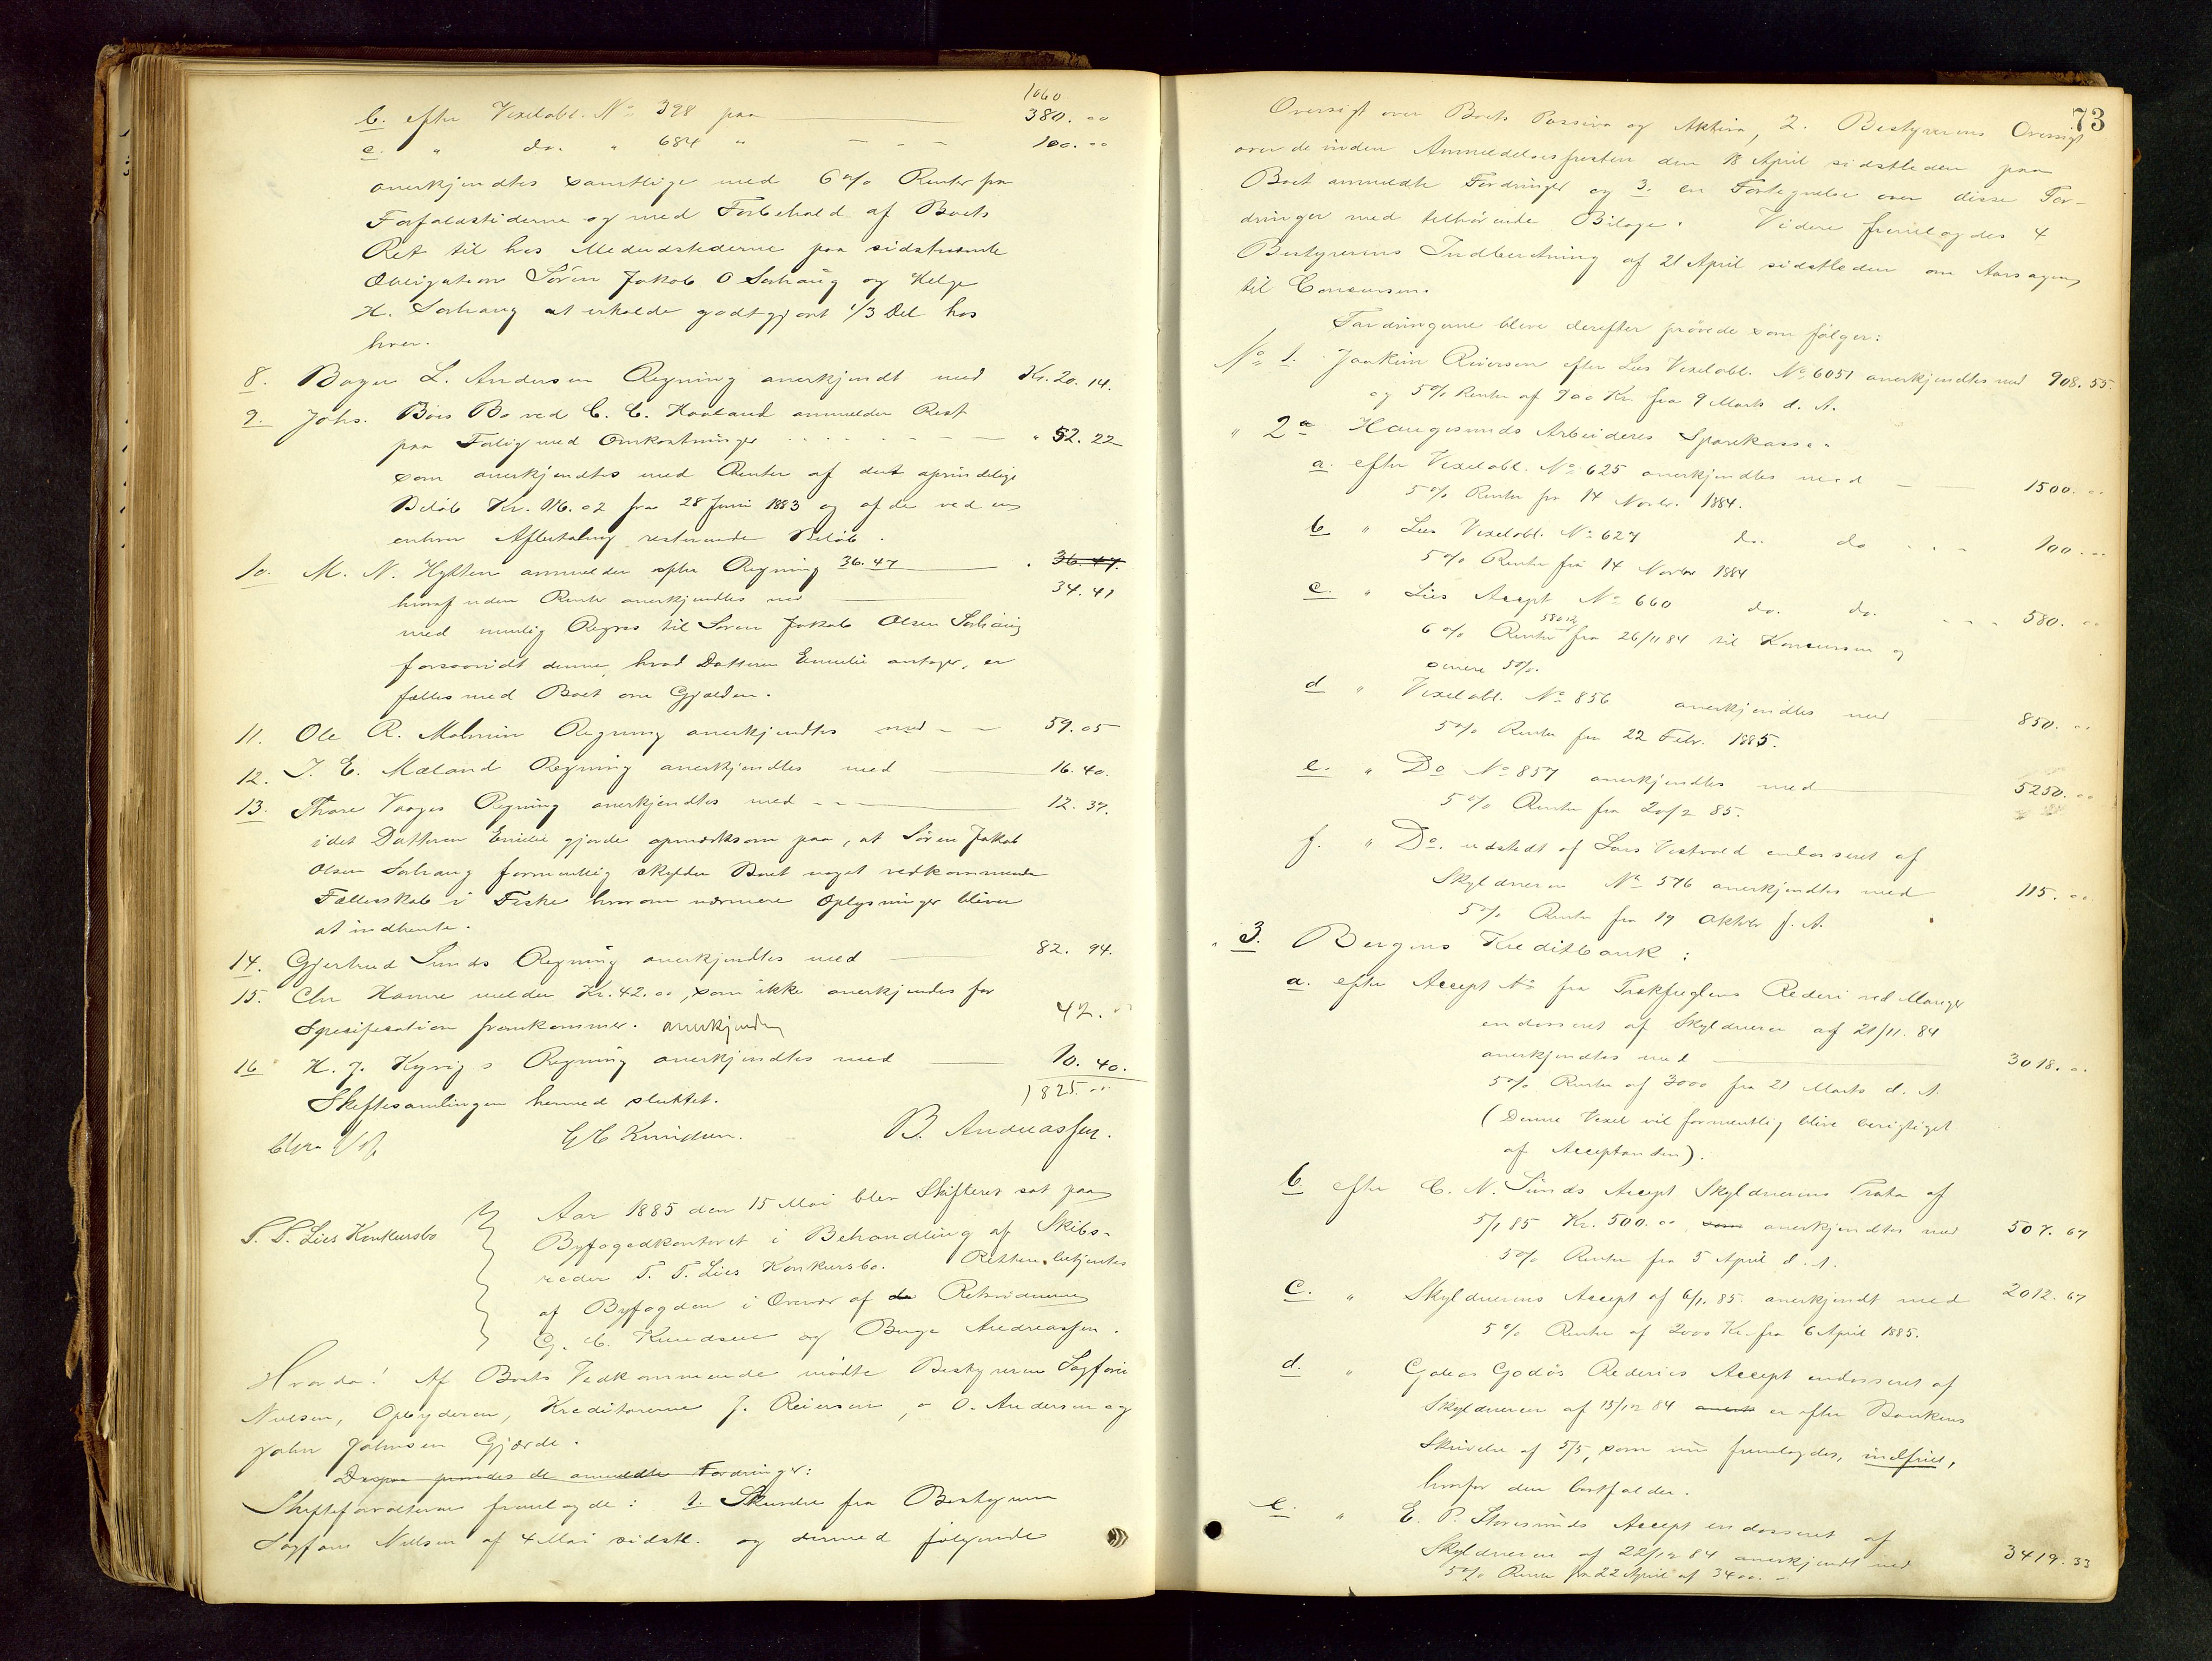 1060
b. efter Vexelobl. No 398 paa 380.00
c. " do. " 684 " 100.00
anerkjendtes samtlige med 6 % Renter fra
Forfaldstiderne og med Forbehold af Boets
Ret til hos Medudstederne paa sidstnævnte
Obligation Sören Jakob O Sorhaug og Helge
H. Sorhaug at erholde godtgjort 1/3 Del hos
hver.
8. L. Andersen Regning anerkjendt med Kr. 20.14.
9. Johs. Böes Bo ved C. C. Haaland anmelder Rest
paa Forlig med Omkostninger " 52.22
som anerkjendtes med Renter af det oprindelige
Beløb Kr. 116.02 fra 28 Juni 1883 og af de ved en
enhver Afbetaling resterende Beløb.
10. M. N. anmelder efter Regning 36.47 36.47.
hvoraf uden Rente anerkjendtes med 34.41
med mulig Regres til Sören Jakob Olsen Sorhaug
forsaavidt denne, hvad Datteren Emilie antager, er
fælles med Boet om Gjælden.
11. Ole R. Malmin Regning anerkjendtes med 59.05
12. T. E. Mæland Regning anerkjendtes med 16.40.
13. Thore Vaages Regning anerkjendtes med 12.37.
idet Datteren Emilie gjorde opmærksom paa, at Sören Jakob
Olsen Sorhaug formentlig skylder Boet noget vedkommende
Fællesskab i Fiske hvorom nærmere Oplysninger bliver
at indhente.
14. Gjertrud Sunds Regning anerkjendtes med 82.94.
15. Chr Hamre melder Kr. 42.00, som ikke anerkjendes før
Specification fremkommer. anerkjendes 42.
16 H. J. Kyvigs Regning anerkjendtes med 10.40.
Skiftesamlingen hermed sluttet. 1825.00
G C Knudsen. B. Andreassen.
T. T. Lies Konkursbo
Aar 1885 den 15 Mai blev Skifteret sat paa
Byfogedkontoret i Behandling af Skibs-
reder T. T. Lies Konkursbo. Retten betjentes
af Byfogden i Overvær af de Retsvidnerne
G. C. Knudsen og Berge Andreassen.
Hvorda! Af Boets Vedkommende mödte Bestyreren Sagförer
Nielsen, Opbyderen, Kreditorerne J. Reiersen, O. Andersen og
John Johnsen Gjærde.
Derpaa prøvedes de anmeldte Fordringer:
Skifteforvalteren fremlagde: 1. Skrivelse fra Bestyreren
Sagförer Nielsen af 4 Mai sidstl. og dermed fölgende
73
Oversigt over Boets Passiva og Aktiva, 2. Bestyrerens Oversigt
over de inden Anmeldelsesfristen den 18 April sidstleden paa
Boet anmeldte Fordringer og 3. en Fortegnelse over disse For-
dringer med tilhörende Bilage. Videre fremlagdes 4
Bestyrerens Indberetning af 21 April sidstleden om Aarsagen
til Concursen.
Fordringerne bleve derefter prövede som fölger:
No 1. Joakim Reiersen efter Lies Vexelobl. No 6051 anerkjendtes med 908.55.
og 5% Renter af 900 Kr. fra 9 Marts d. A.
" 2a Haugesunds Arbeideres Sparekasse.
a. efter Vexelobl. No 625 anerkjendtes med 1500.00
5% Renter fra 14 Novbr. 1884.
b " Lies Vexelobl. No 627 do. do 100.00
5% Renter fra 14 Novbr 1884
c. " Lies Accept No 660 do. do. 580.00
6 % Renter fra 26/11 84 til Konkursen og
senere 5%.
d " Vexelobl. No 856 anerkjendtes med 850.00
5% Renter fra 22 Febr. 1885.
e. " Do No 857 anerkjendtes med 5250.00
5 % Renter fra 20/2 85.
f. " Do. udstedt af Lars Vestvold endosseret af
Skyldneren No 576 anerkjendtes med 115.00
5% Renter fra 17 Oktbr f. A.
" 3. Bergens Kreditbank:
a. efter Accept No fra Trækfuglens Rederi ved Manger
endosseret af Skyldneren af 21/11.84
anerkjendtes med 3018.00
5% Renter af 3000 fra 21 Marts d. A.
(Denne Vexel vil formentlig blive berigtiget
af Acceptanten).
b efter C. N. Sunds Accept Skyldnerens Trata af
5/1 85 Kr. 500.00 som anerkjendtes med 507.67
5% Renter fra 5 April d. A.
c. " Skyldnerens Accept af 6/1. 85 anerkjendt med 2012.67
5 % Renter af 2000 Kr. fra 6 April 1885.
d. " Galeas Godös Rederies Accept endosseret af
Skyldneren af 13/12 84 er efter Bankens
Skrivelse af 5/5, som nu fremlagdes, indfriet,
hvorfor den bortfalder.
e. " E. P. Storesunds Accept endosseret af
Skyldneren af 22/12 84 anerkjendt med 3419.33
5% Rente fra 22 April af 3400.-